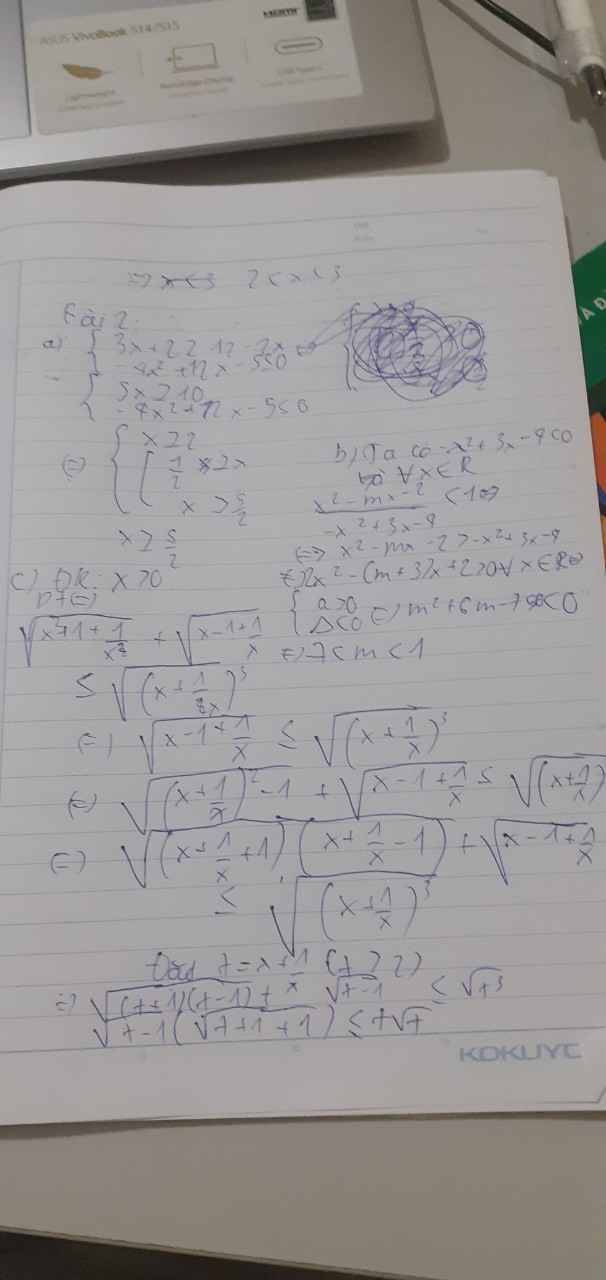 ASUS VivoBook S14/S15
HDMI
=> x<3 2<x<3
Bài 2:
a) { 3x+2≥12-2x <=>
-4x²+12x-5≤0
{ 5x≥10
-4x²+12x-5≤0
(=) { x≥2
[ 1/2 ≥x
x≥5/2
x≥5/2
b) Ta có -x²+3x-4<0
∀x∈R
(x²-mx-2)/(-x²+3x-4) <1 <=>
<=> x²-mx-2>-x²+3x-4
<=> 2x²-(m+3)x+2>0 ∀x∈R <=>
{ a>0
Δ<0 <=> m²+6m-7<0
<=> -7<m<1
c) ĐK: x>0
BPT <=>
√(x²+1+1/x²) + √(x-1+1/x)
≤ √((x+1/x)³)
(=) √(x-1+1/x) ≤ √((x+1/x)³)
(=) √((x+1/x)²-1) + √(x-1+1/x) ≤ √((x+1/x)
(=) √((x+1/x+1)(x+1/x-1)) + √(x-1+1/x)
≤ √((x+1/x)³)
Đặt t=x+1/x (t≥2)
(=) √((t+1)(t-1)) + √(t-1) ≤ √t³
√(t-1) (√(t+1)+1) ≤ t√t
KOKUYO